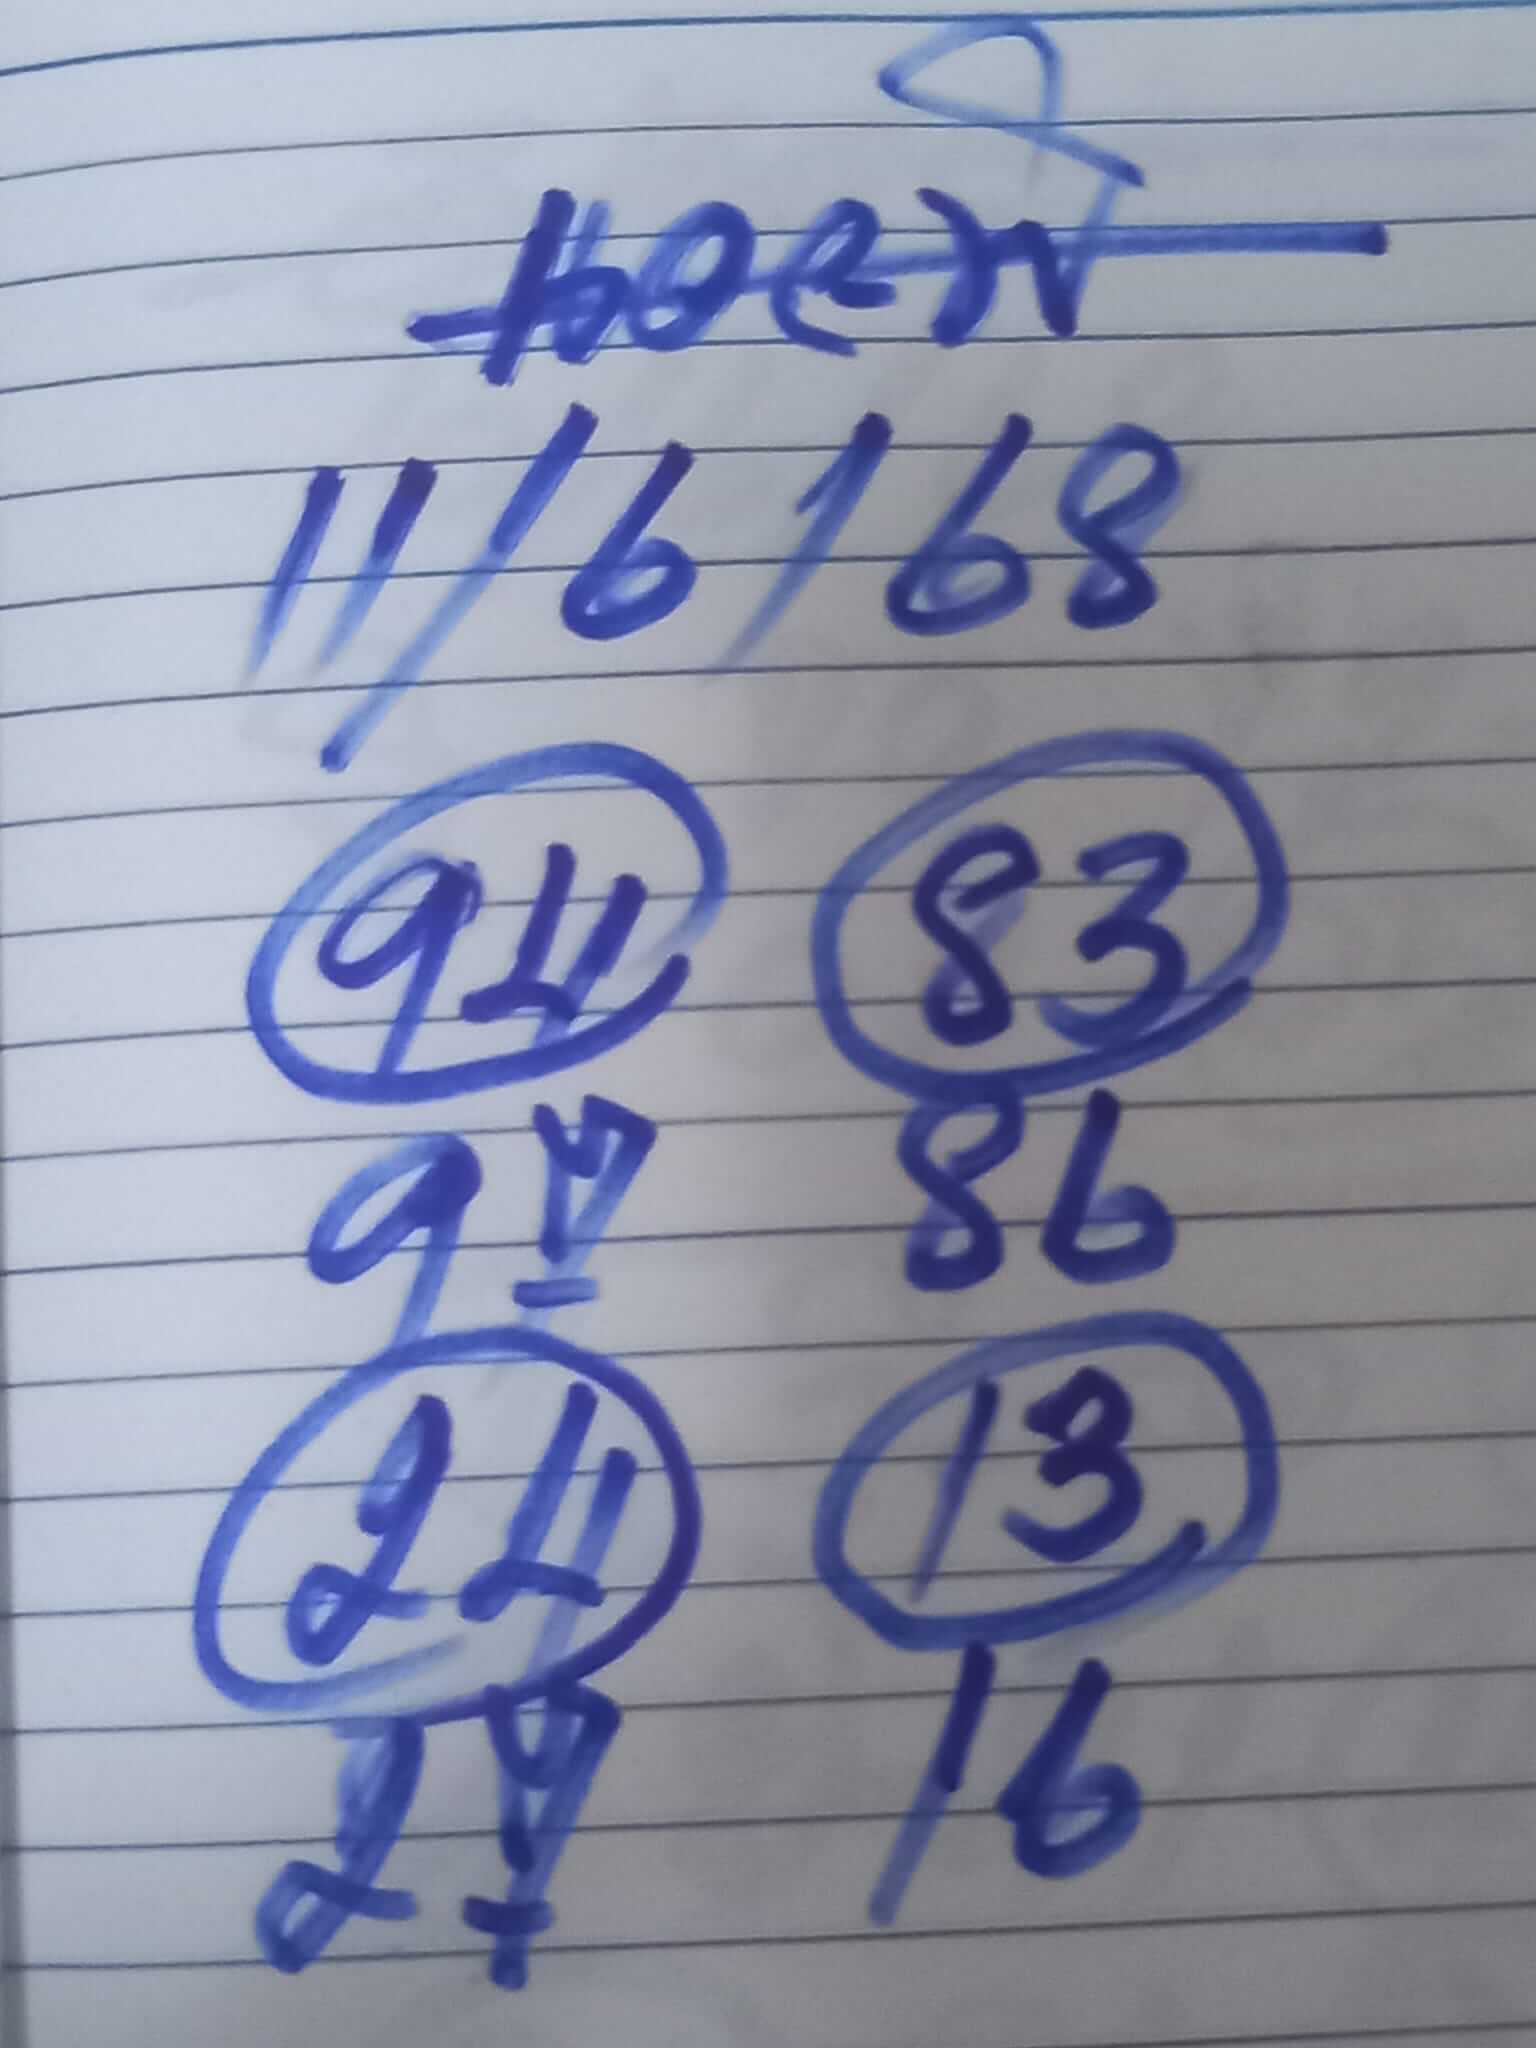 11/6/68
94 83
97 86
24 13
27 16